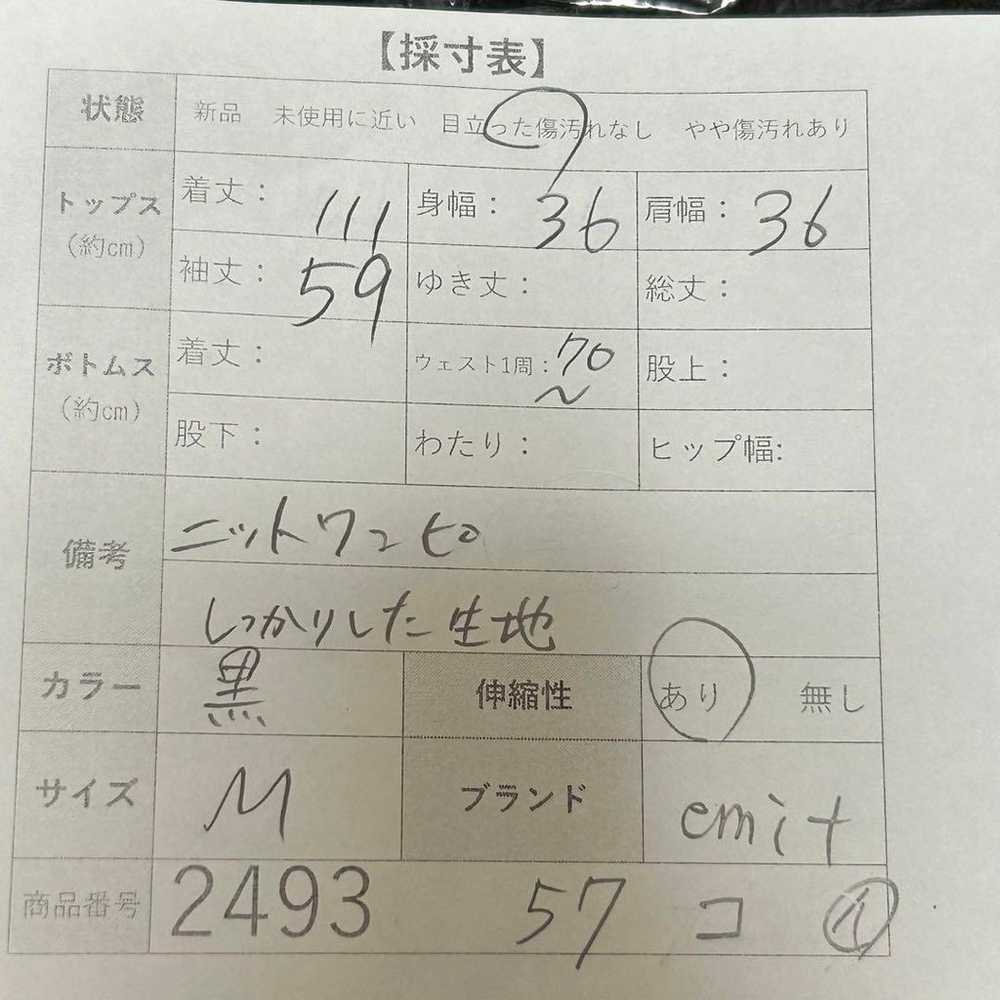 【採寸表】
状態 新品 未使用に近い 目立った傷汚れなし やや傷汚れあり
トップス (約cm) 着丈: 111 身幅: 36 肩幅: 36
袖丈: 59 ゆき丈: 総丈:
ボトムス (約cm) 着丈: ウェスト1周: 70〜 股上:
股下: わたり: ヒップ幅:
備考 ニットワンピ
しっかりした生地
カラー 黒 伸縮性 あり 無し
サイズ M ブランド emit
商品番号 2493 57 コ